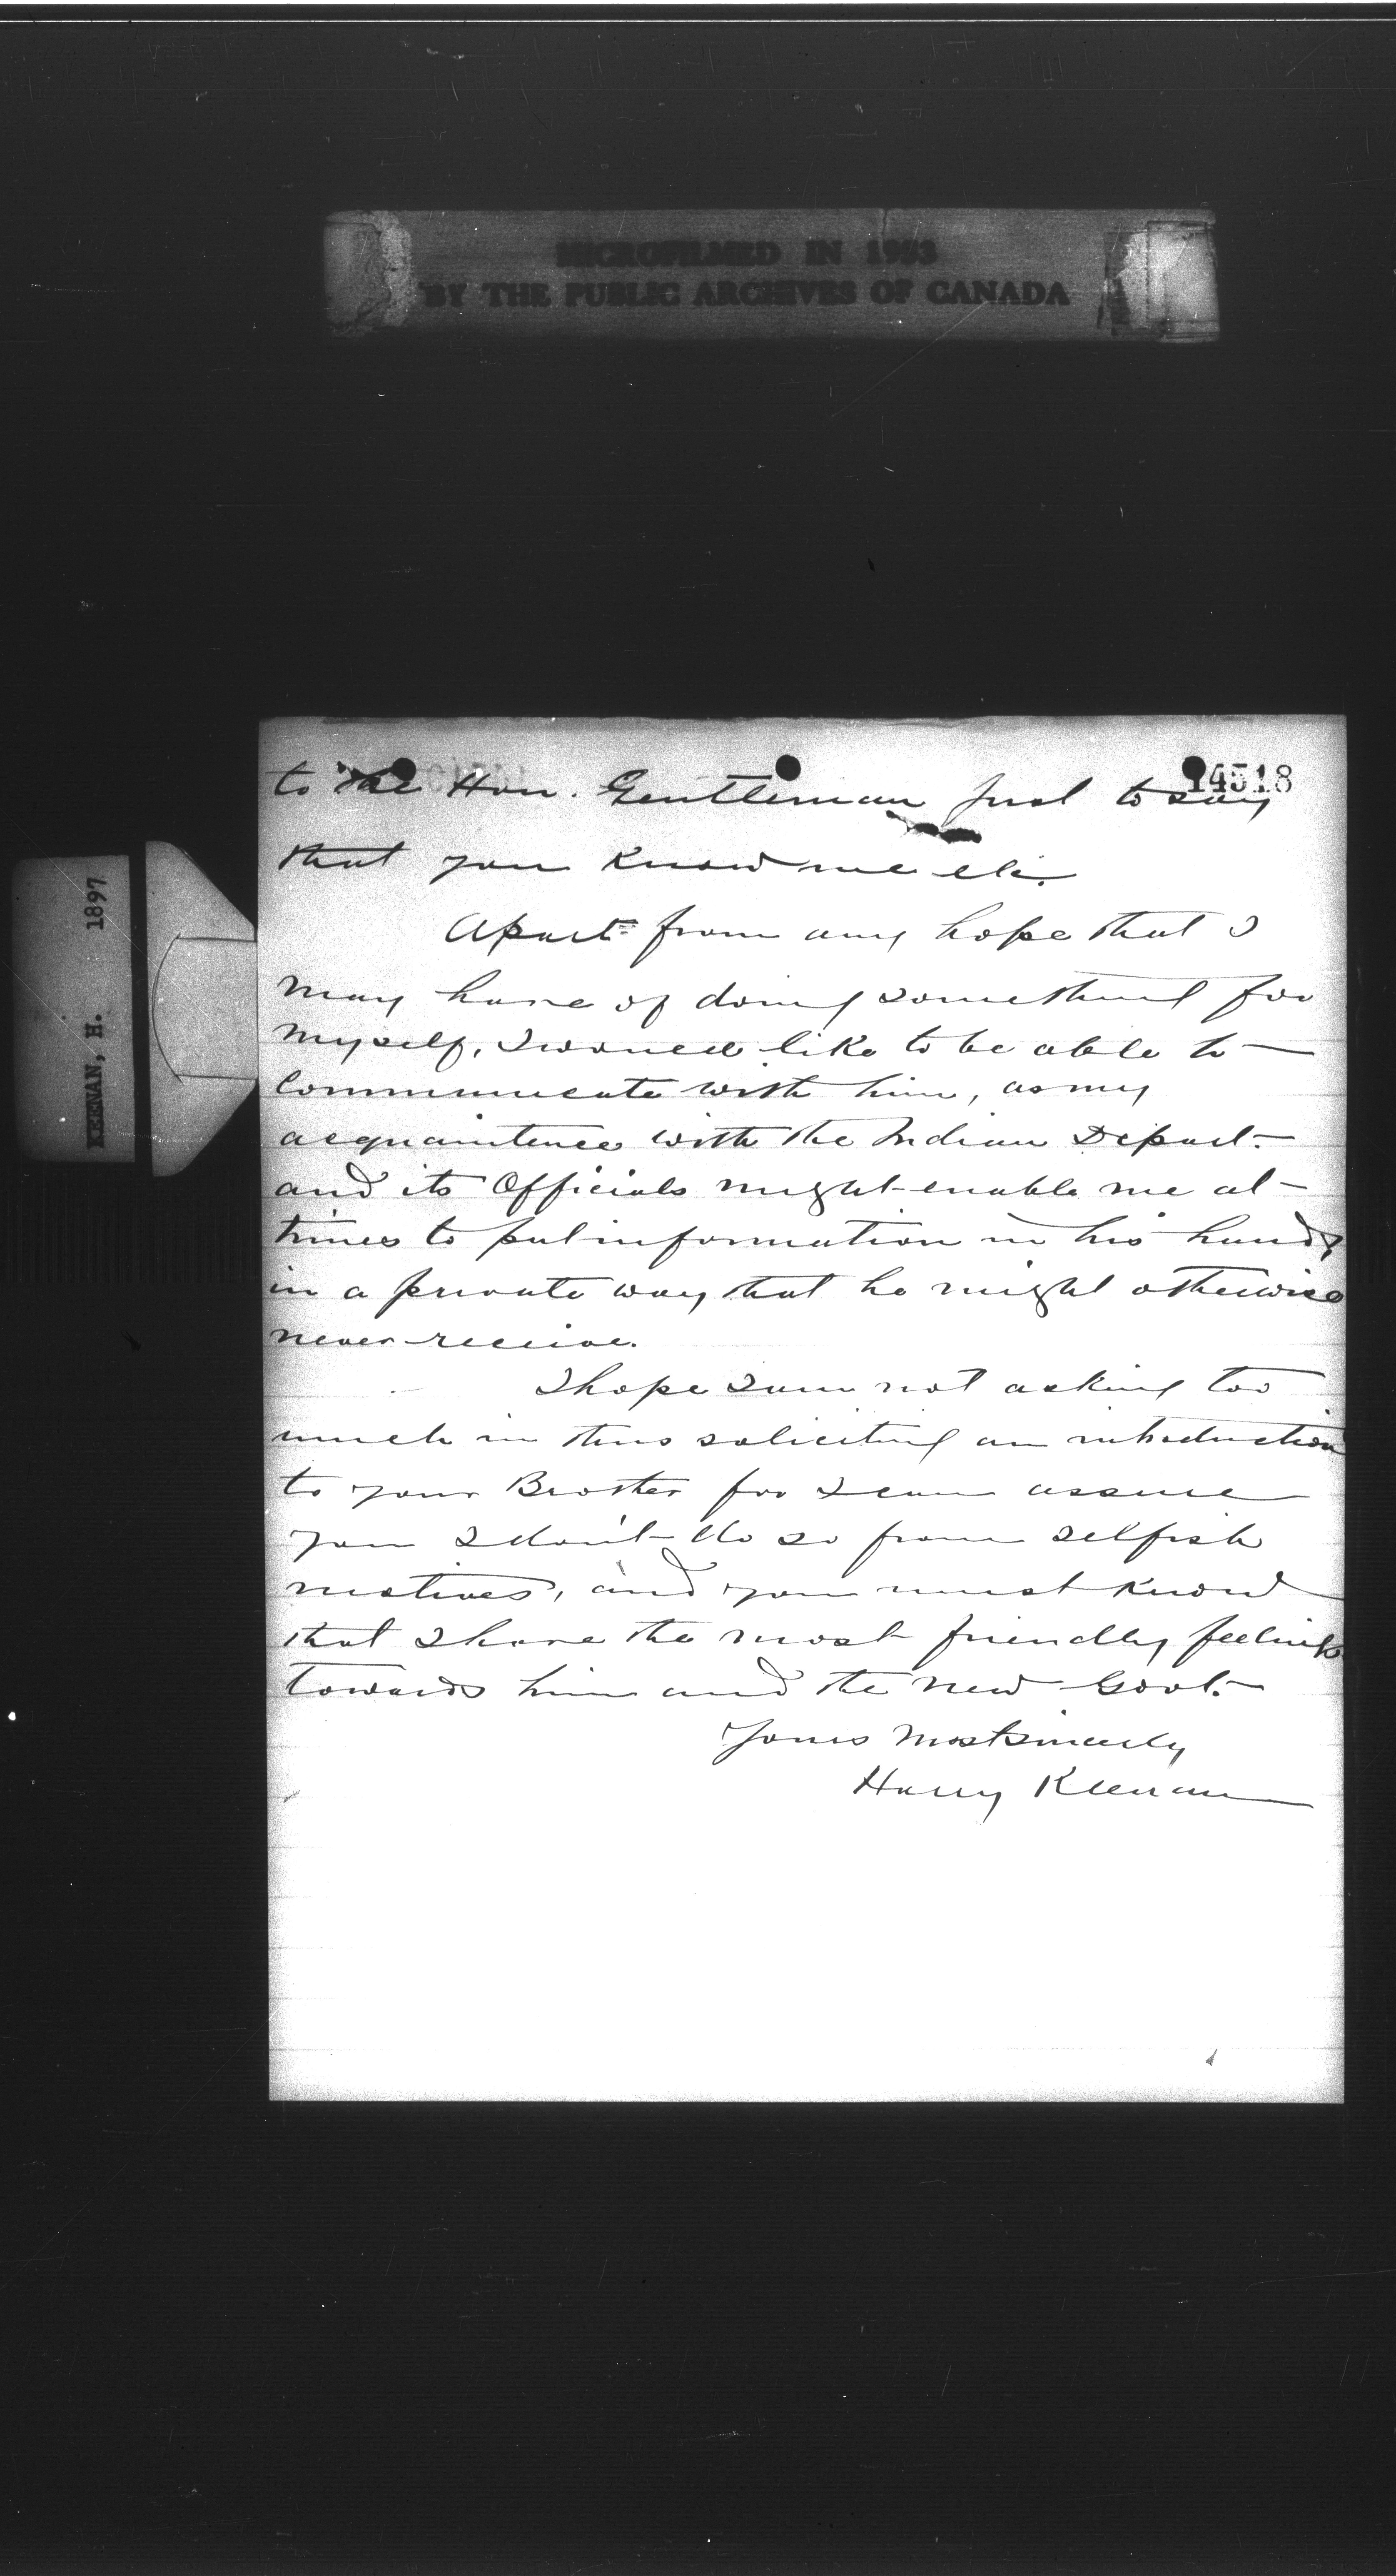 MICROFILMED IN 1953
BY THE PUBLIC ARCHIVES OF CANADA
KEENAN, H. 1897
14518
to the Hon. Gentleman just to say
that you know me etc.
Apart from any hope that I
may have of doing something for
myself, I would like to be able to
communicate with him, as my
acquaintence with the Indian Depart.
and its Officials might enable me at
times to put information in his hands
in a private way that he might otherwise
never receive.
I hope I am not asking too
much in thus soliciting an introduction
to your Brother for I can assure
you I don't do so from selfish
motives, and you must know
that I have the most friendly feelings
towards him and the new Govt.
Yours most sincerely
Harry Keenan